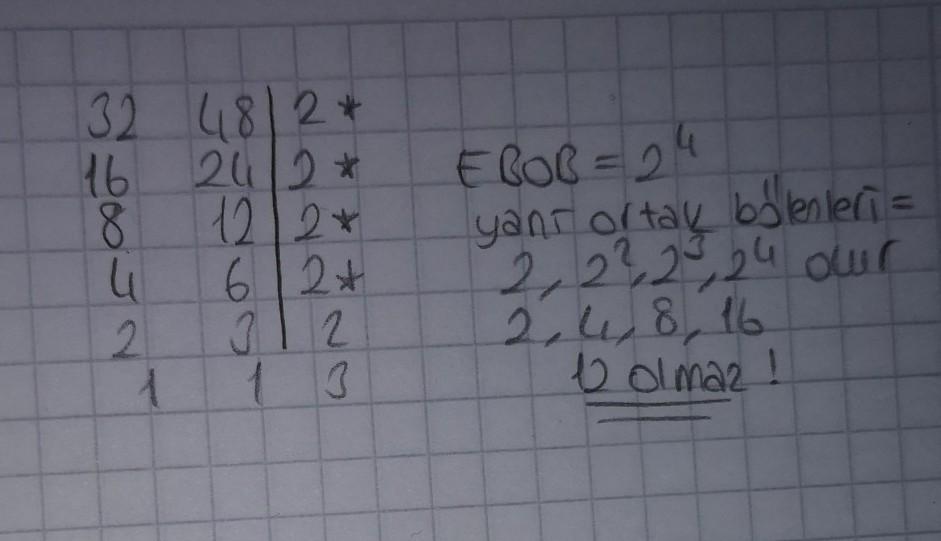 32 48 | 2 *
16 24 | 2 *
8 12 | 2 *
4 6 | 2 *
2 3 | 2
1 1 3
EBOB = 2⁴
yani ortak bölenleri =
2, 2², 2³, 2⁴ olur
2, 4, 8, 16
12 olmaz !